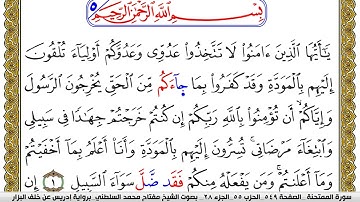 بِسْمِ اللَّهِ الرَّحْمَٰنِ الرَّحِيمِ
يَٰٓأَيُّهَا ٱلَّذِينَ ءَامَنُوا۟ لَا تَتَّخِذُوا۟ عَدُوِّى وَعَدُوَّكُمُۥٓ أَوْلِيَآءَ تُلْقُونَ
إِلَيْهِم بِٱلْمَوَدَّةِ وَقَدْ كَفَرُوا۟ بِمَا جَآءَكُم مِّنَ ٱلْحَقِّ يُخْرِجُونَ ٱلرَّسُولَ
وَإِيَّاكُمُۥٓ أَن تُؤْمِنُوا۟ بِٱللَّهِ رَبِّكُمُۥٓ إِن كُنتُمْ خَرَجْتُمْ جِهَٰدًا فِى سَبِيلِى
وَٱبْتِغَآءَ مَرْضَاتِى تُسِرُّونَ إِلَيْهِم بِٱلْمَوَدَّةِ وَأَنَا۠ أَعْلَمُ بِمَآ أَخْفَيْتُمْ
وَمَآ أَعْلَنتُمْ وَمَن يَفْعَلْهُ مِنكُمْ فَقَد ضَّلَّ سَوَآءَ ٱلسَّبِيلِ ١ إِن
سورة الممتحنة. الصفحة ٥٤٩. الحزب ٥٥. الجزء ٢٨. بصوت الشيخ مفتاح محمد السلطني. برواية إدريس عن خلف البزار